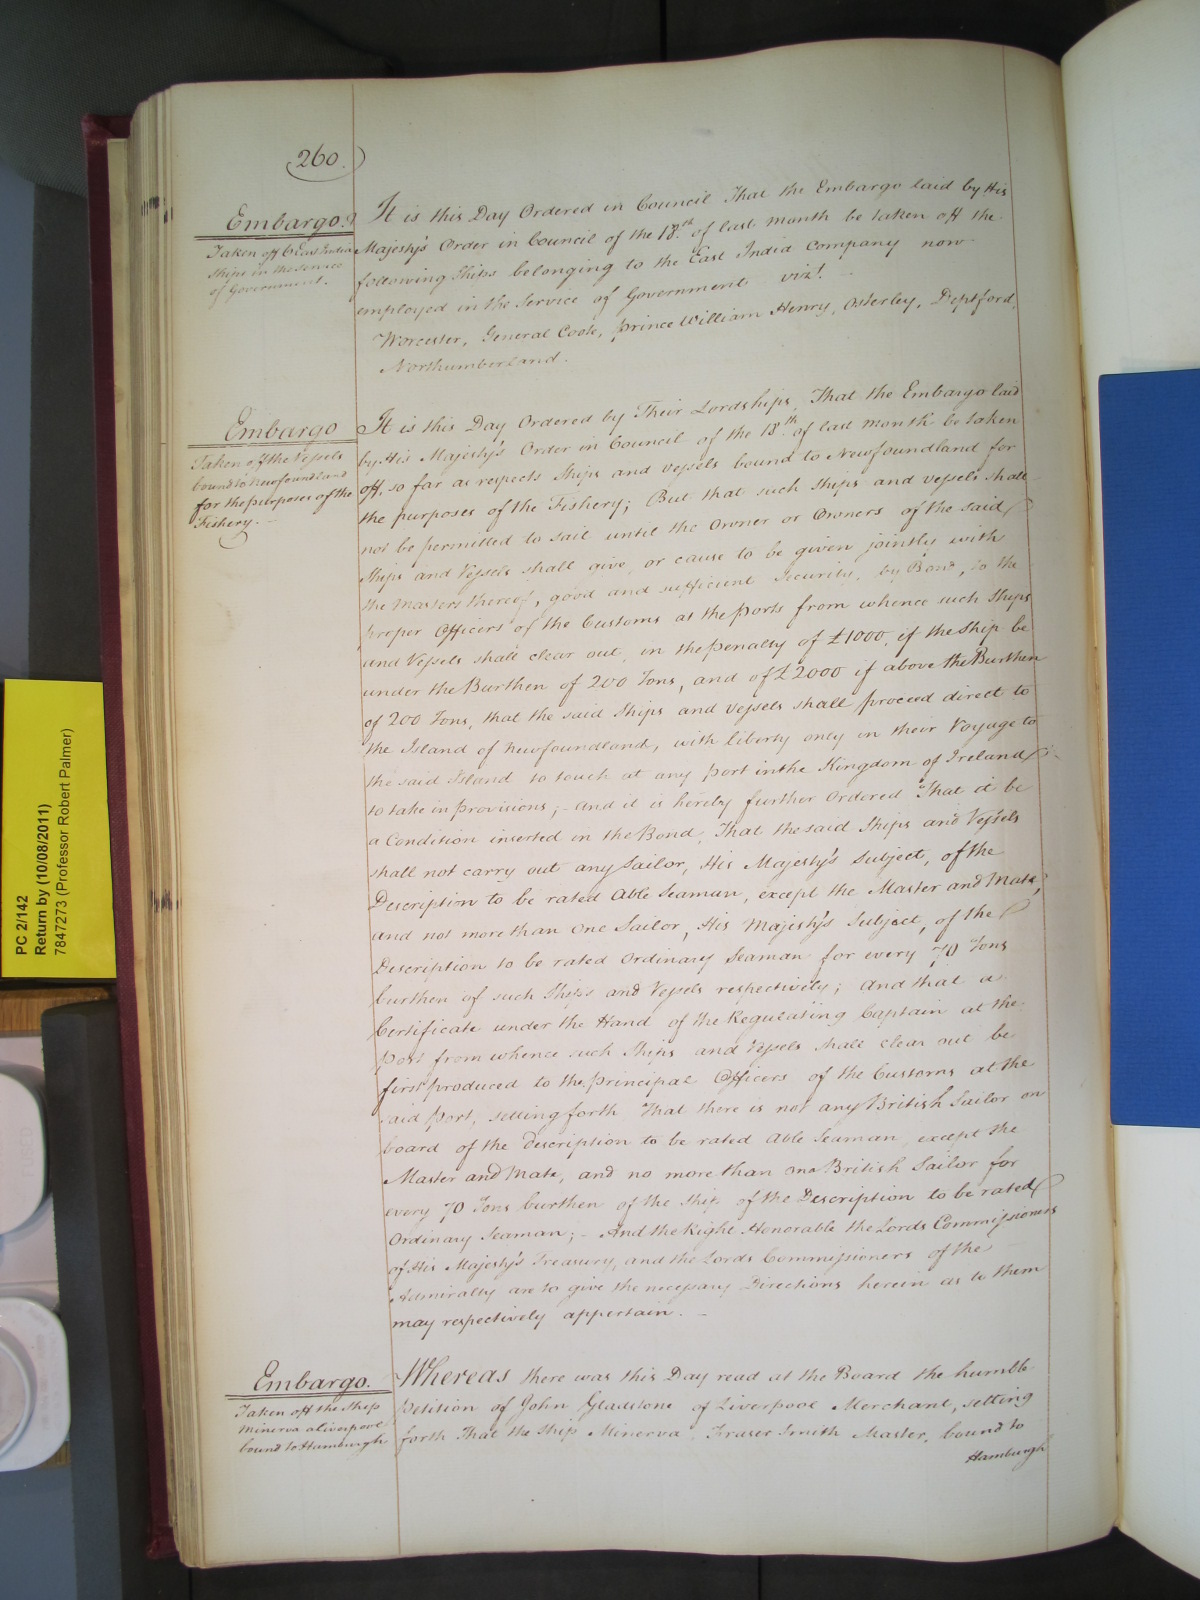 260.
Embargo.
Taken off 6 East India
Ships in the Service
of Government.
It is this Day Ordered in Council That the Embargo laid by His
Majesty's Order in Council of the 18.th of last Month be taken off the
following Ships belonging to the East India Company now
employed in the Service of Government vizt.
Worcester, General Coote, Prince William Henry, Osterley, Deptford,
Northumberland.
Embargo
Taken off the Vessels
bound to Newfoundland
for the purposes of the
Fishery.
It is this Day Ordered by Their Lordships, That the Embargo laid
by His Majesty's Order in Council of the 18.th of last Month be taken
off, so far as respects Ships and Vessels bound to Newfoundland for
the purposes of the Fishery; But that such Ships and Vessels shall
not be permitted to sail until the Owner or Owners of the said
Ships and Vessels shall give, or cause to be given jointly with
the Masters thereof, good and sufficient Security, by Bond, to the
proper Officers of the Customs at the Ports from whence such Ships
and Vessels shall clear out, in the Penalty of £1000, if the Ship be
under the Burthen of 200 Tons, and of £2000 if above the Burthen
of 200 Tons, that the said Ships and Vessels shall proceed direct to
the Island of Newfoundland, with liberty only in their Voyage to
the said Island to touch at any Port in the Kingdom of Ireland
to take in Provisions; - and it is hereby further Ordered That it be
a Condition inserted in the Bond, That the said Ships and Vessels
shall not carry out any Sailor, His Majesty's Subject, of the
Description to be rated Able Seaman, except the Master and Mate,
and not more than One Sailor, His Majesty's Subject, of the
Description to be rated Ordinary Seaman for every 70 Tons
burthen of such Ships and Vessels respectively; And that a
Certificate under the Hand of the Regulating Captain at the
Port from whence such Ships and Vessels shall clear out be
first produced to the Principal Officers of the Customs at the
said Port, setting forth That there is not any British Sailor on
board of the Description to be rated Able Seaman, except the
Master and Mate, and no more than one British Sailor for
every 70 Tons burthen of the Ship of the Description to be rated
Ordinary Seaman; - And the Right Honorable the Lords Commissioners
of His Majesty's Treasury, and the Lords Commissioners of the
Admiralty are to give the necessary Directions herein as to them
may respectively appertain. -
Embargo.
Taken off the Ship
Minerva at Liverpool
bound to Hamburgh
Whereas there was this Day read at the Board the humble
Petition of John Gladstone of Liverpool Merchant, setting
forth That the Ship Minerva, Fraser Smith Master, bound to
Hamburgh
PC 2/142
Return by (10/08/2011)
7847273 (Professor Robert Palmer)